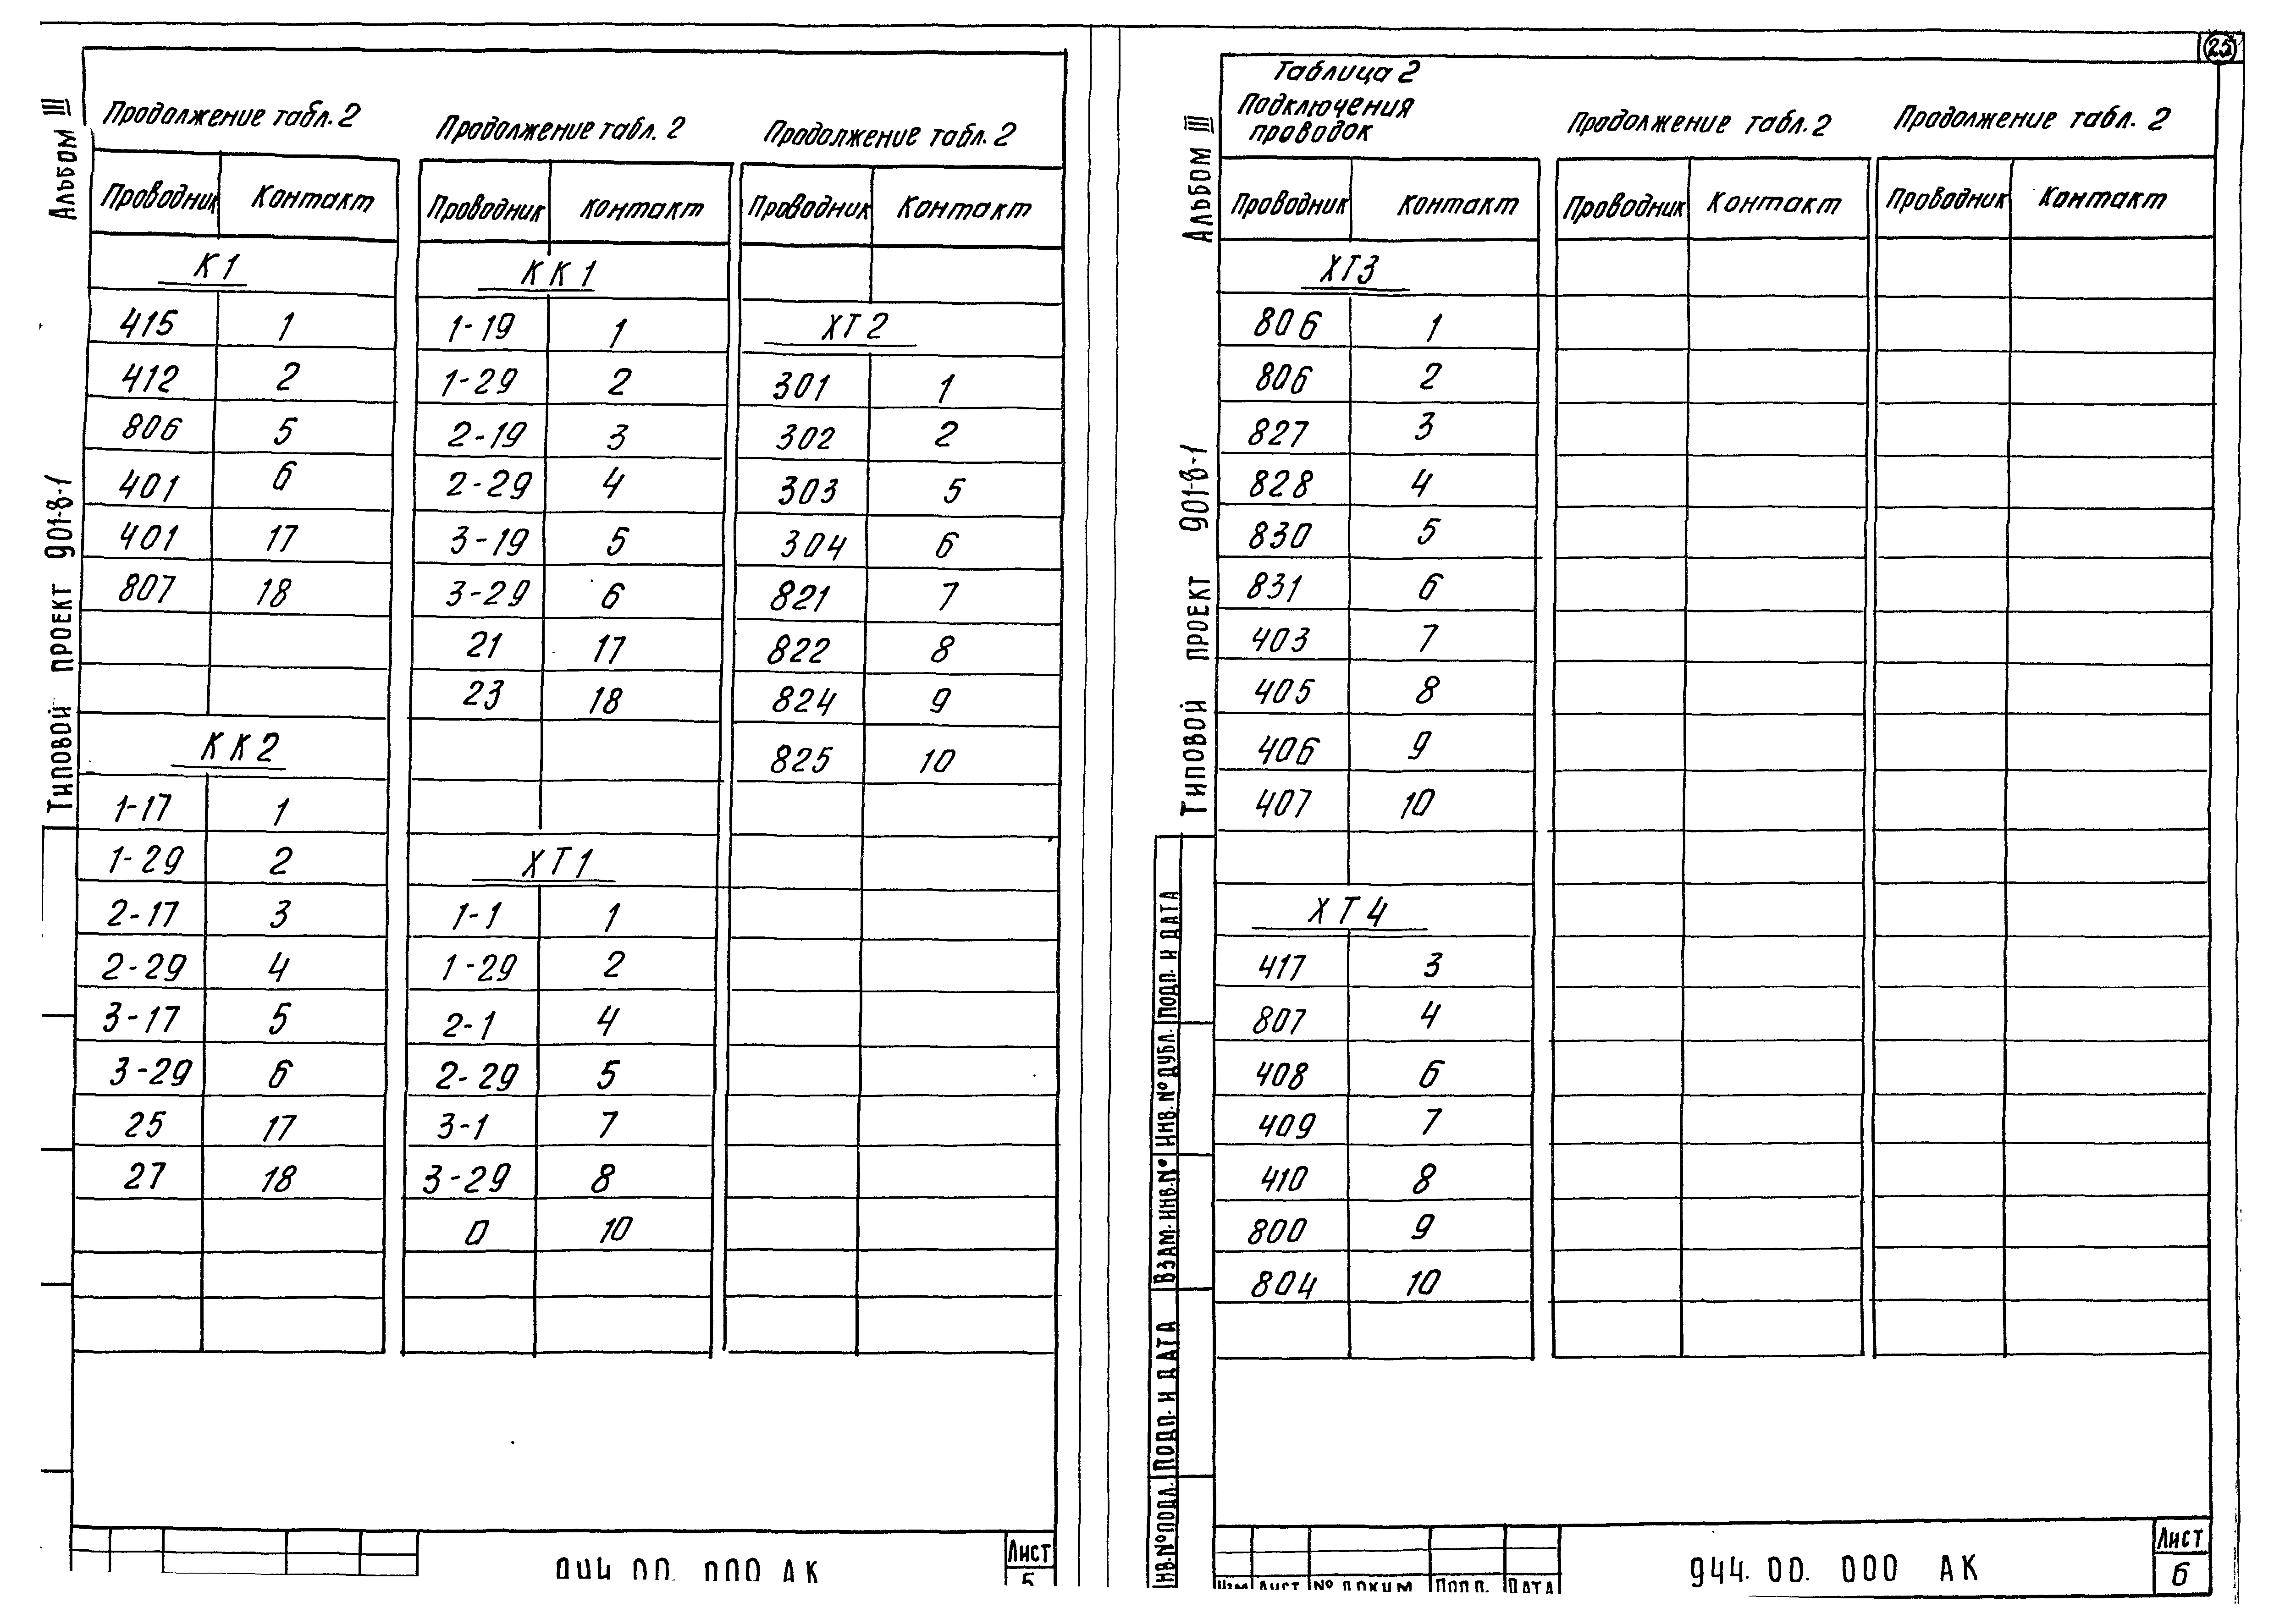 Альбом III
Типовой проект 901-8-1
Продолжение табл. 2
Проводник Контакт
К1
415 1
412 2
806 5
401 6
401 17
807 18
КК2
1-17 1
1-29 2
2-17 3
2-29 4
3-17 5
3-29 6
25 17
27 18
Продолжение табл. 2
Проводник Контакт
КК1
1-19 1
1-29 2
2-19 3
2-29 4
3-19 5
3-29 6
21 17
23 18
ХТ1
1-1 1
1-29 2
2-1 4
2-29 5
3-1 7
3-29 8
0 10
Продолжение табл. 2
Проводник Контакт
ХТ2
301 1
302 2
303 5
304 6
821 7
822 8
824 9
825 10
944.00.000 АК
Лист
5
25
Альбом III
Типовой проект 901-8-1
Таблица 2
Подключения
проводок
Проводник Контакт
ХТ3
806 1
806 2
827 3
828 4
830 5
831 6
403 7
405 8
406 9
407 10
ХТ4
417 3
807 4
408 6
409 7
410 8
800 9
804 10
Продолжение табл. 2
Проводник Контакт
Продолжение табл. 2
Проводник Контакт
Подп. и дата
Инв. № дубл.
Взам. инв. №
Подп. и дата
Инв. № подл.
Изм Лист № докум. Подп. Дата
944.00.000 АК
Лист
6